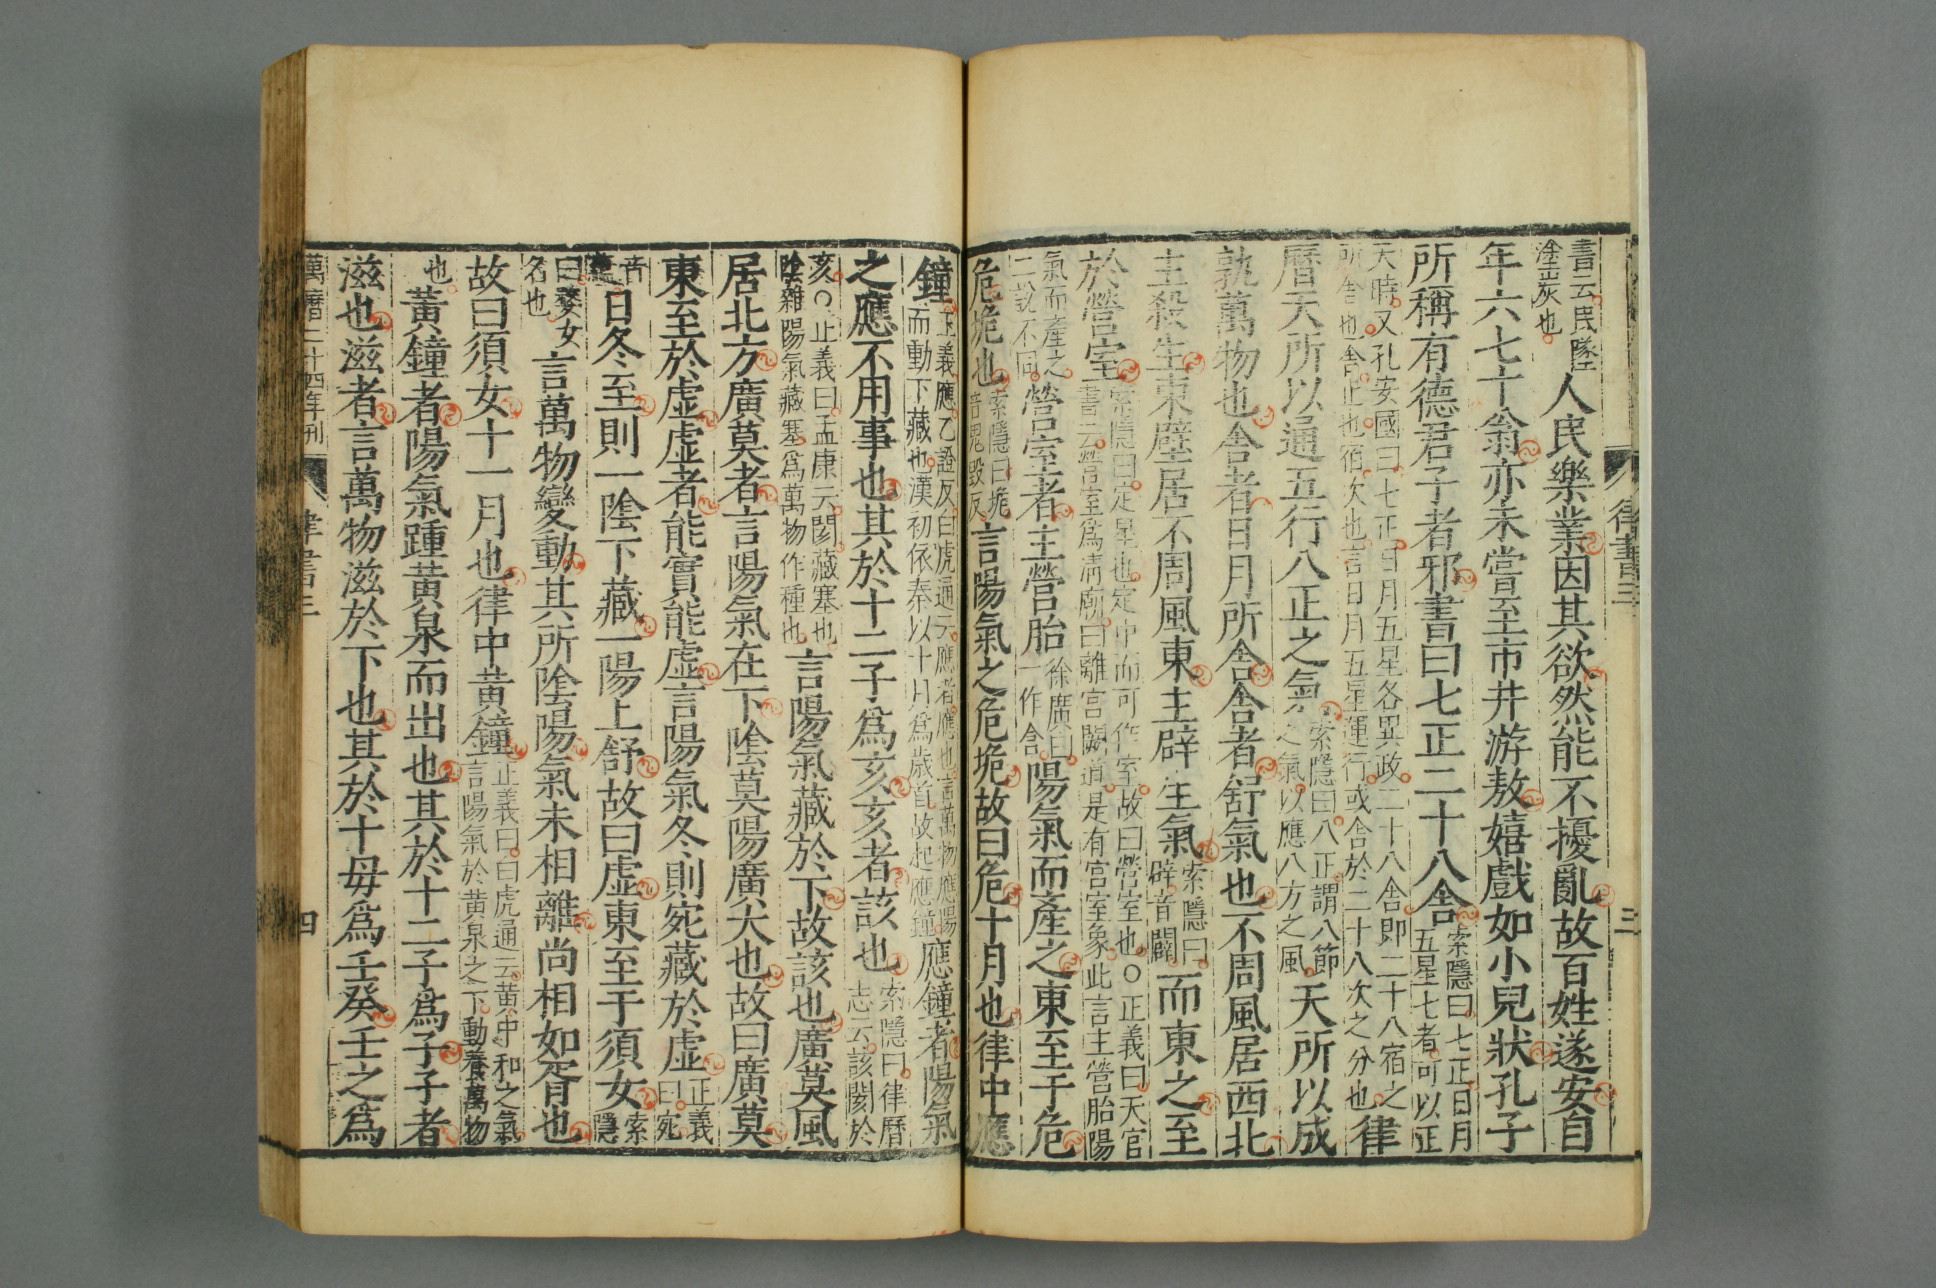 書云民墜塗炭也人民樂業因其欲然能不擾亂故百姓遂安自
年六七十翁亦未嘗至市井游敖嬉戲如小兒狀孔子
所稱有德君子者邪書曰七正二十八舍索隱曰七正日月五星七者可以正
天時又孔安國曰七正日月五星各異政二十八舍即二十八宿之所舍也舍止也宿次也言日月五星運行或舍於二十八次之分也律
曆天所以通五行八正之氣索隱曰八正謂八節之氣以應八方之風天所以成
孰萬物也舍者日月所舍舍者舒氣也不周風居西北
主殺生東壁居不周風東主辟生氣索隱曰辟音闢而東之至
於營室索隱曰定星也定中而可作室故曰營室也○正義曰天官書云營室爲清廟曰離宮閣道是有宮室象此言主營胎陽
氣而產之二說不同營室者主營胎徐廣曰一作含陽氣而產之東至于危
危垝也索隱曰垝音鬼毀反言陽氣之危垝故曰危十月也律中應
鐘正義應乙證反白虎通云應者應也言萬物應陽而動下藏也漢初依秦以十月爲歲首故起應鐘應鐘者陽氣
之應不用事也其於十二子爲亥亥者該也索隱曰律曆志云該閡於
亥○正義曰孟康云閡藏塞也陰雜陽氣藏塞爲萬物作種也言陽氣藏於下故該也廣莫風
居北方廣莫者言陽氣在下陰莫陽廣大也故曰廣莫
東至於虛虛者能實能虛言陽氣冬則宛藏於虛正義曰宛
音蘊日冬至則一陰下藏一陽上舒故曰虛東至于須女索隱
曰婺女名也言萬物變動其所陰陽氣未相離尚相如胥也
故曰須女十一月也律中黃鐘正義曰白虎通云黃中和之氣言陽氣於黃泉之下動養萬物
也黃鐘者陽氣踵黃泉而出也其於十二子爲子子者
滋也滋者言萬物滋於下也其於十毋爲壬癸壬之爲
律書三
三
萬曆二十四年刊
律書三
四